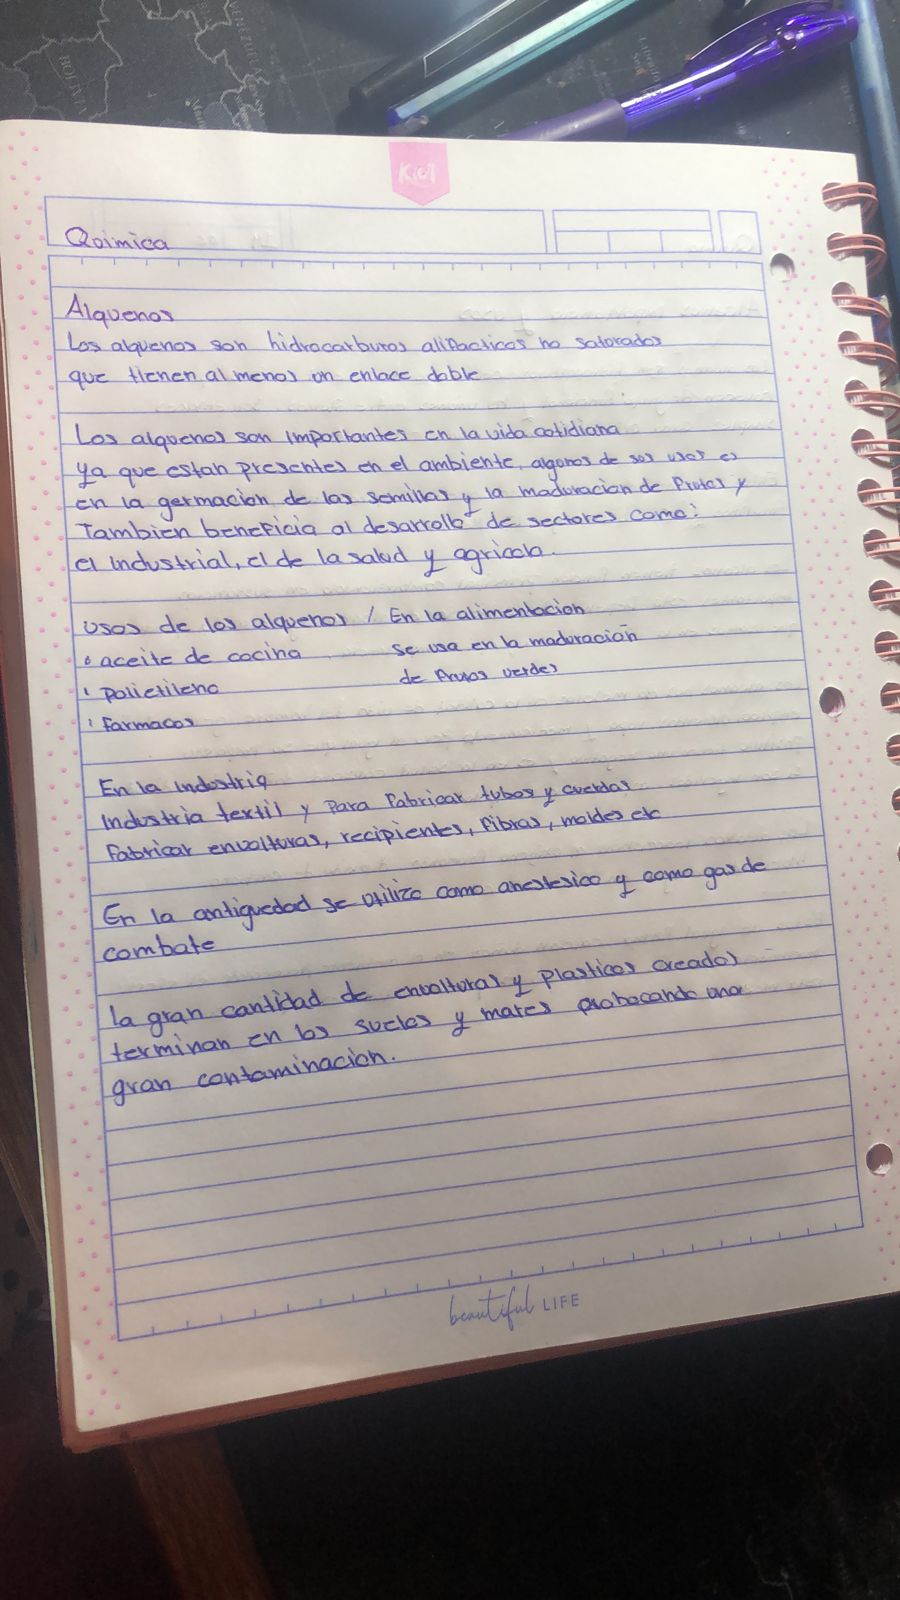 Kiut
Quimica
Alquenos
Los alquenos son hidrocarburos alifacticos no saturados
que tienen al menos un enlace doble
Los alquenos son importantes en la vida cotidiana
ya que estan presentes en el ambiente, algunos de sus usos es
en la germacion de las semillas y la maduracion de frutas y
Tambien beneficia al desarrollo de sectores como:
el industrial, el de la salud y agricola.
usos de los alquenos / En la alimentacion
• aceite de cocina se usa en la maduración
• Polietileno de frutas verdes
• farmacos
En la industria
Industria textil y para fabricar tubos y cuerdas
fabricar envolturas, recipientes, fibras, moldes etc
En la antiguedad se utilizo como anestesico y como gas de
combate
la gran cantidad de envolturas y plasticos creados
terminan en los suelos y mares probocando una
gran contaminacion.
beautiful LIFE